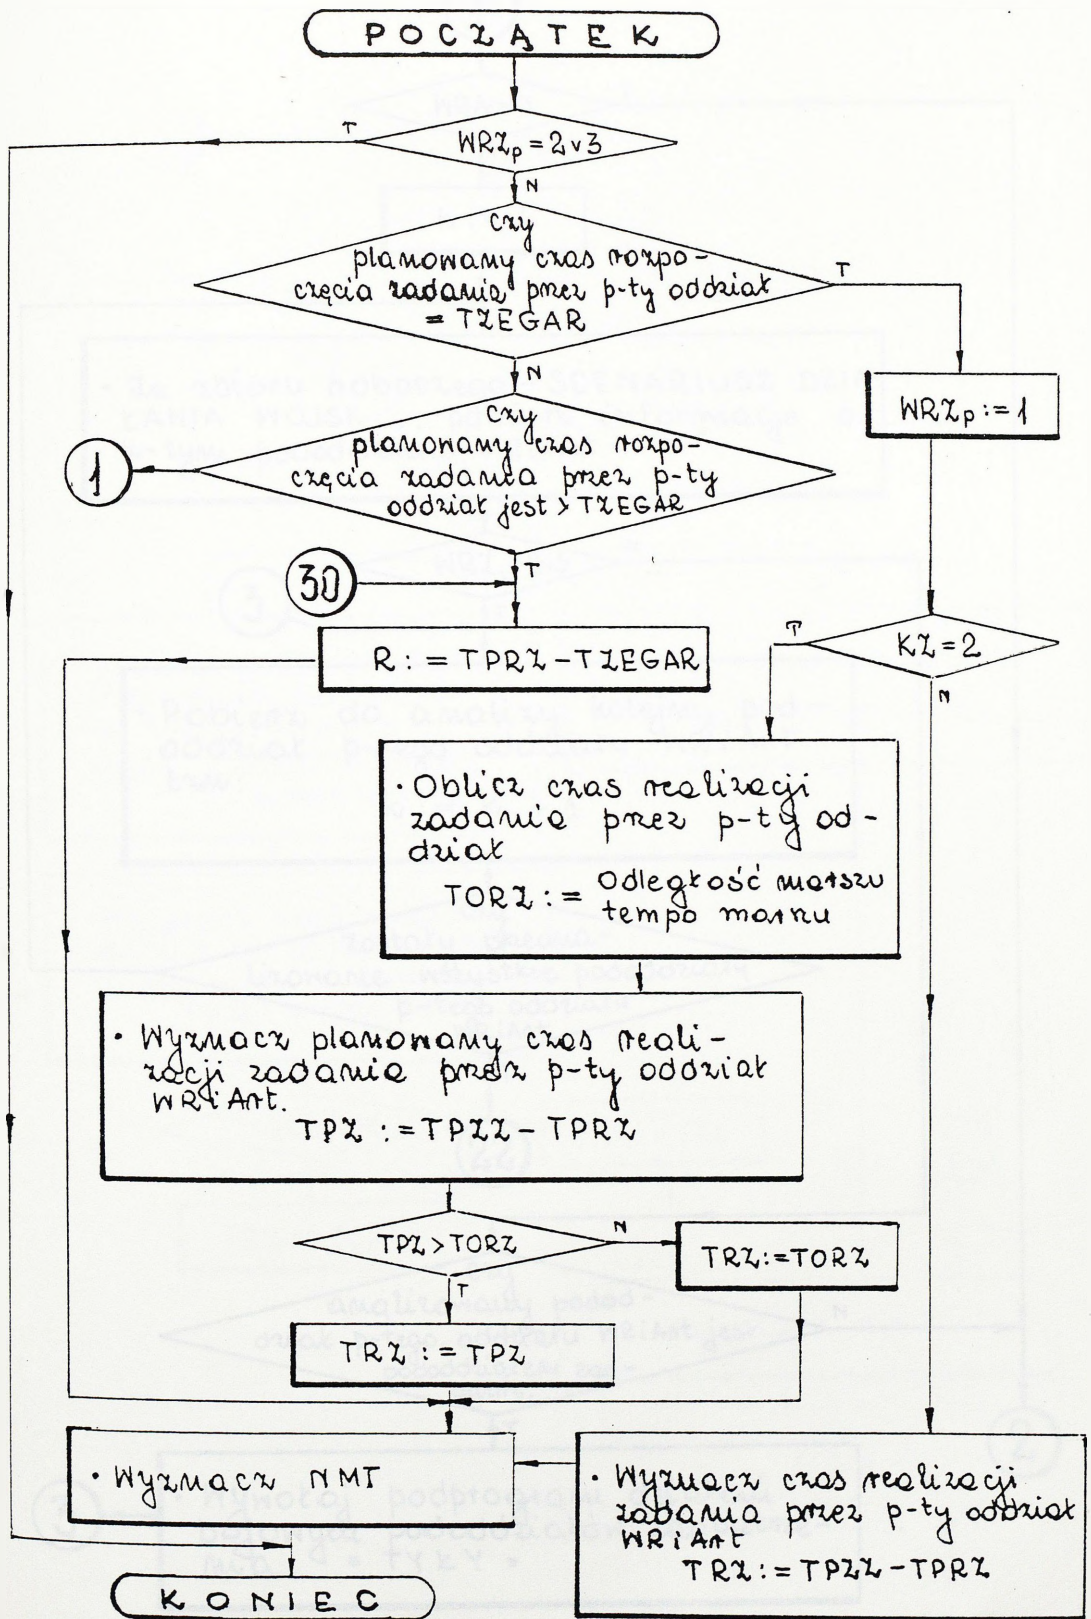 POCZĄTEK
T
WRZp = 2 v 3
N
czy
planowany czas rozpo-
częcia zadania przez p-ty oddział
= TZEGAR
T
N
WRZp := 1
czy
planowany czas rozpo-
częcia zadania przez p-ty
oddział jest > TZEGAR
1
T
30
R := TPRZ - TZEGAR
T
KZ = 2
N
· Oblicz czas realizacji
zadania przez p-ty od-
dział
TORZ := Odległość marszu
tempo marszu
· Wyznacz planowany czas reali-
zacji zadania przez p-ty oddział
WRiArt.
TPZ := TPZZ - TPRZ
TPZ > TORZ
N
TRZ := TORZ
T
TRZ := TPZ
· Wyznacz NMT
· Wyznacz czas realizacji
zadania przez p-ty oddział
WRiArt
TRZ := TPZZ - TPRZ
KONIEC